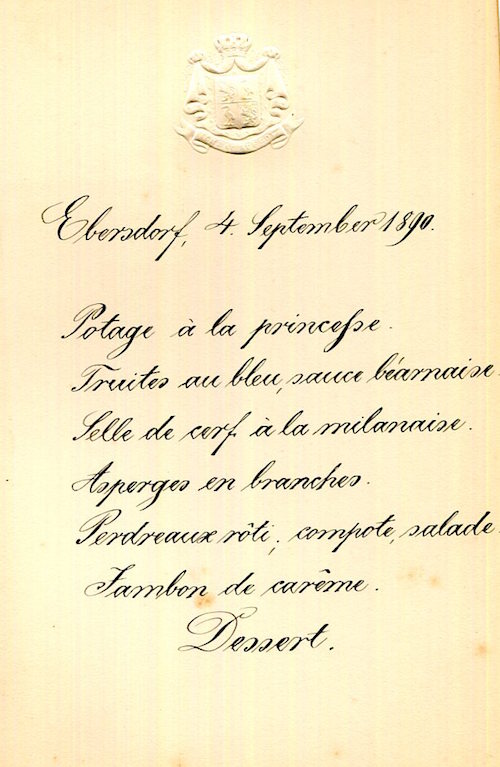 Ebersdorf, 4. September 1890.
Potage à la princesse.
Truites au bleu, sauce béarnaise.
Selle de cerf à la milanaise.
Asperges en branches.
Perdreaux rôti, compote, salade.
Jambon de carême.
Dessert.